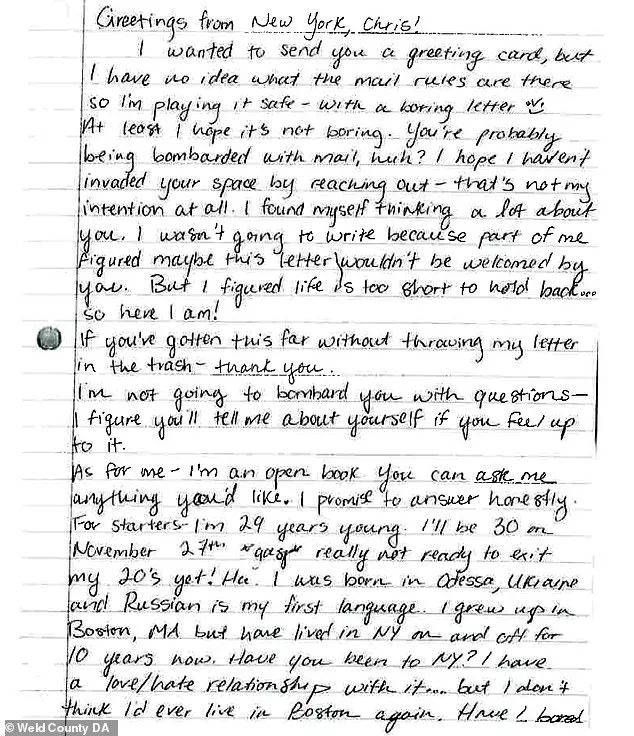 Greetings from New York, Chris!
I wanted to send you a greeting card, but
I have no idea what the mail rules are there
so I'm playing it safe - with a boring letter
At least I hope it's not boring. You're probably
being bombarded with mail, huh? I hope I haven't
invaded your space by reaching out - that's not my
intention at all. I found myself thinking a lot about
you. I wasn't going to write because part of me
figured maybe this letter wouldn't be welcomed by
you. But I figured life is too short to hold back...
so here I am!
If you've gotten this far without throwing my letter
in the trash - thank you.
I'm not going to bombard you with questions -
I figure you'll tell me about yourself if you feel up
to it.
As for me - I'm an open book you can ask me
anything you'd like. I promise to answer honestly.
For starters - I'm 29 years young. I'll be 30 on
November 27th *gasp* really not ready to exit
my 20's yet! Ha. I was born in Odessa, Ukraine
and Russian is my first language. I grew up in
Boston, MA but have lived in NY on and off for
10 years now. Have you been to NY? I have
a love/hate relationship with it... but I don't
think I'd ever live in Boston again. Have I bored
© Weld County DA